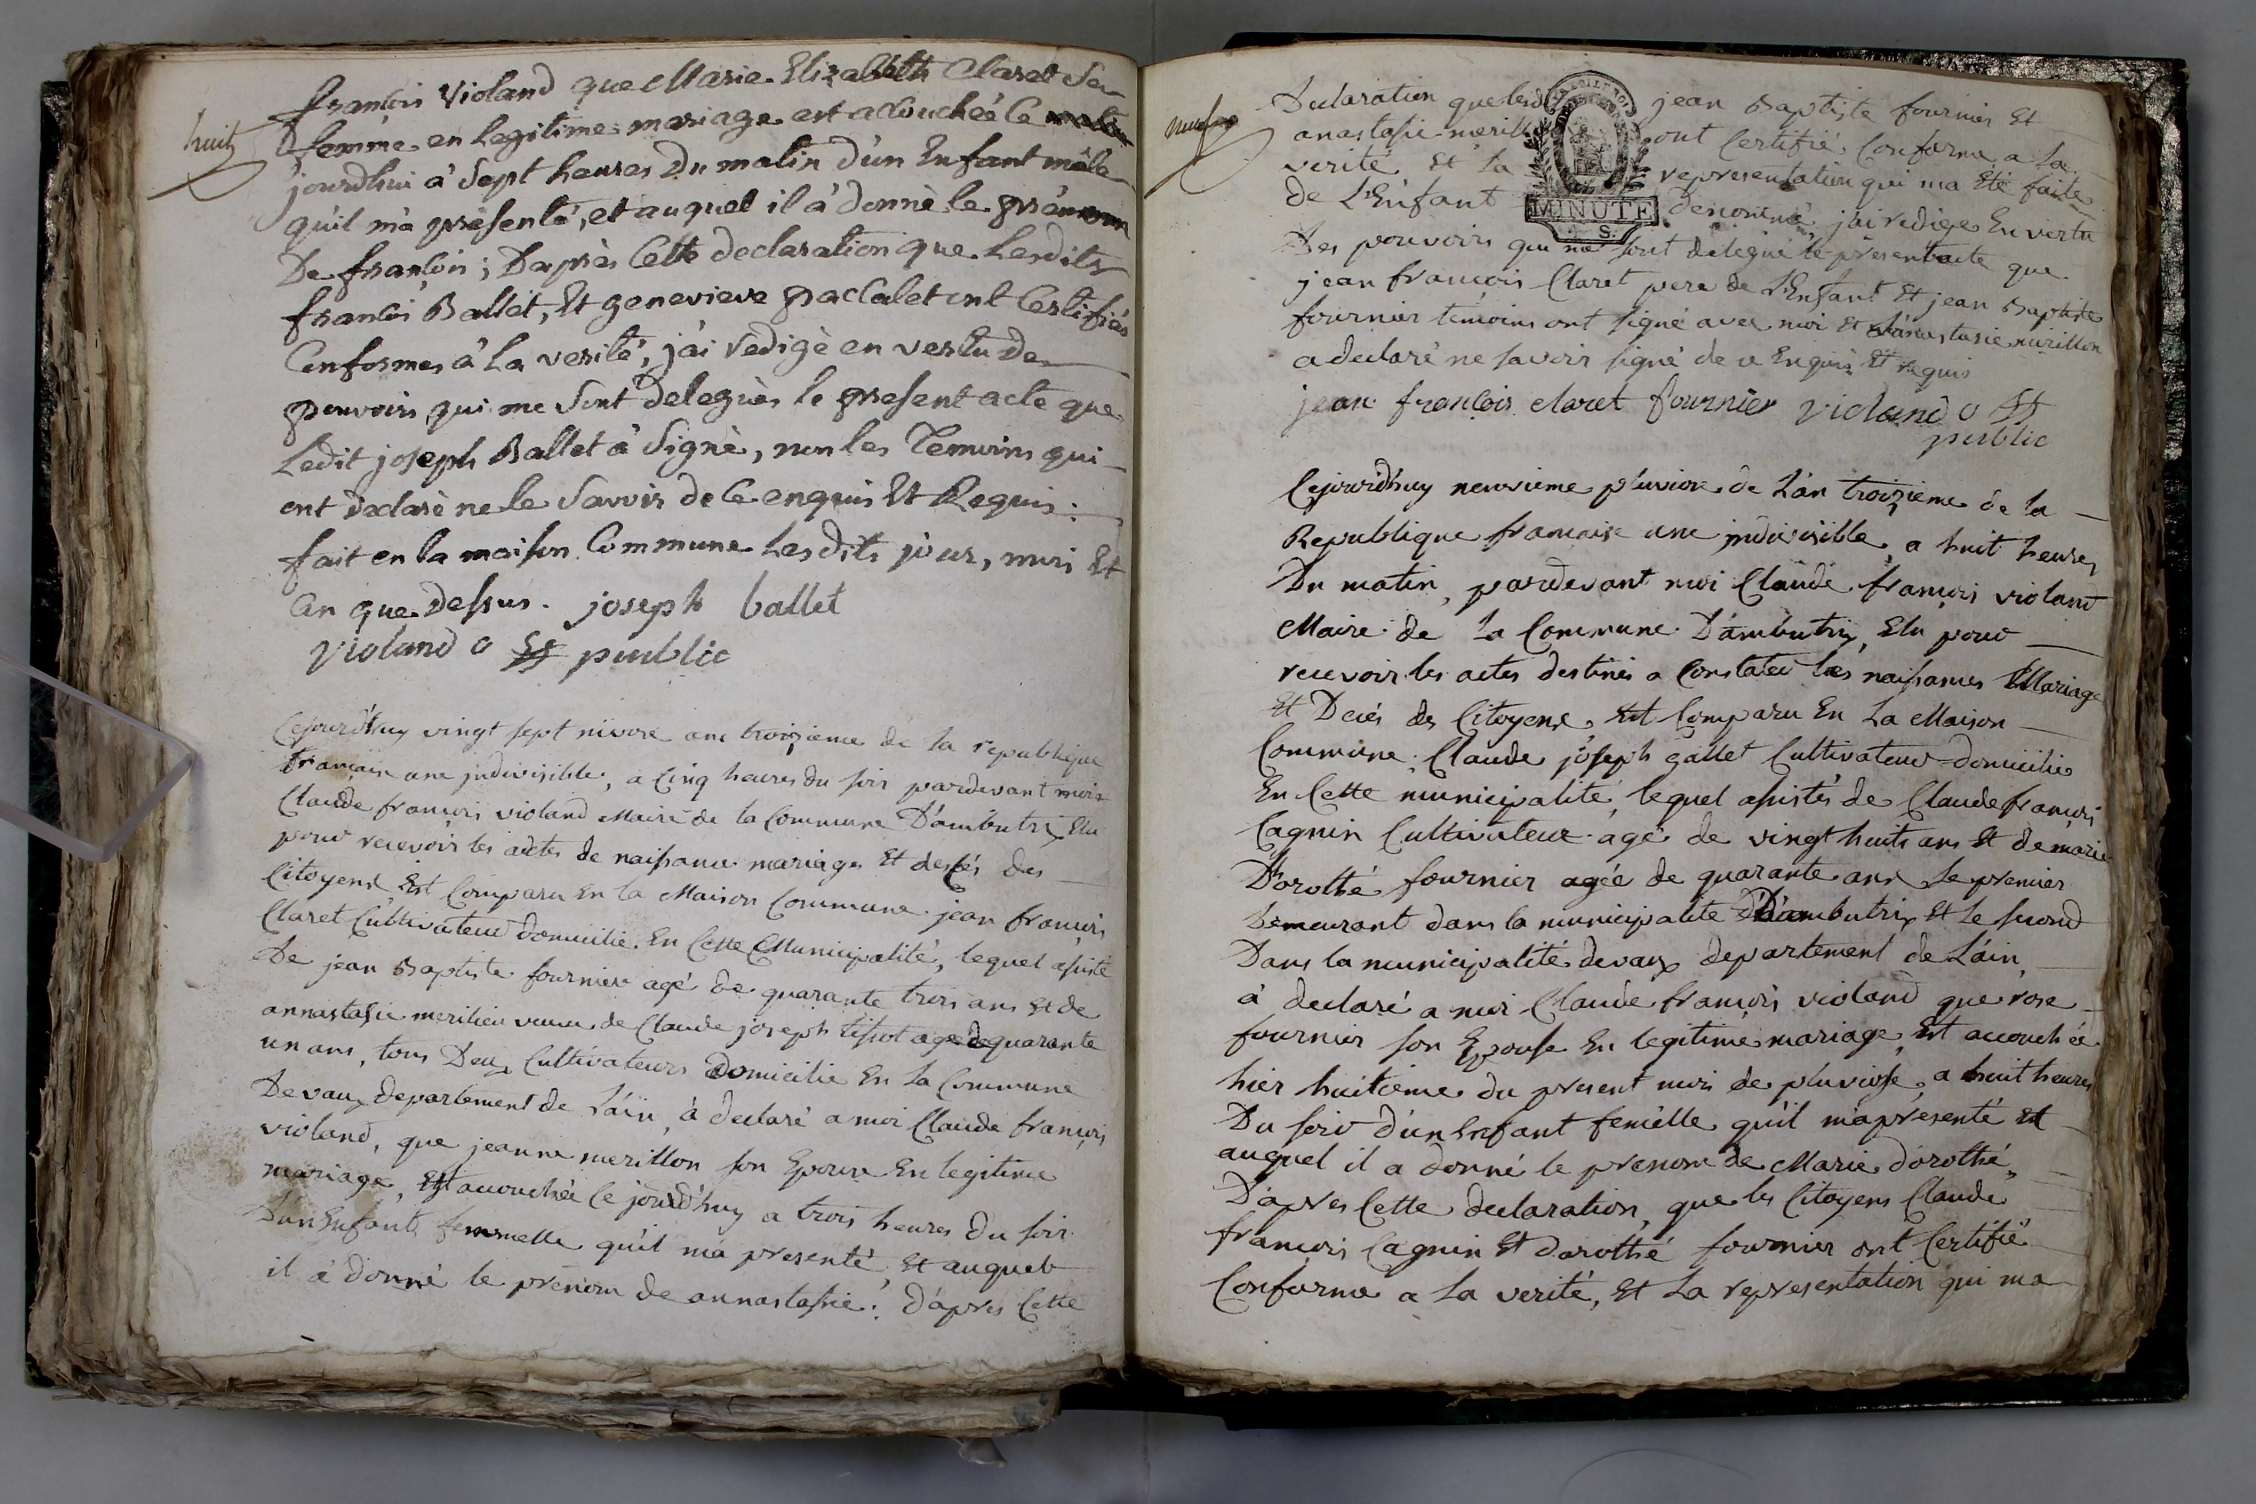 huit
françois Violand que Marie Elizabeth Claret Sa
femme en legitime mariage est accouchée Ce
jourdhui à Sept heures Du matin d'un Enfant mâle
qu'il m'a présenté, et auquel il à donnè le prénom
De françois; Daprès Cette declaration que Lesdits
françois Ballet, Et genevieve paccalet ont Certifiés
Conformes à la verité, j'ai redigè en vertu des
pouvoirs qui me Sont Deleguès le present acte que
Ledit joseph Ballet à Signè, non les Temoins qui
ont declarè ne le Savoir de Ce enquis Et Requis:
fait en la maison Commune Lesdits jour, moi Et
an que Dessus. joseph ballet
violand o public
Cejourd'huy vingt sept nivose ane troizieme de la republique
francaise une jndivisible, a Cinq heures du soir pardevant moi
Claude françois violand Maire de la Commune D'ambutrix Elu
pour recevoir les actes de naissance mariages Et decés des
Citoyens Est Comparu En la Maison Commune jean françois
Claret Cultivateur domicilie En Cette Municipalité, lequel assisté
De jean Baptiste fournier agé de quarante trois ans Et de
annastasie merilieu veuve de Claude joseph tissot agé de quarante
un ans, tous Deux Cultivateurs Domicilie En la Commune
Devaux departement de Lain, à declaré a moi Claude françois
violand, que jeanne merillon son Epouse En legitime
mariage, Est accouchée Ce jourd'huy a trois heures Du soir
D'un Enfant femmelle qu'il m'a presenté, Et auquel
il à donné le prénom de annastasie. D'apres Cette
neuf
Declaration que lesd jean Baptiste fournier Et
anastasie merill ont Certifié Conforme a la
verité Et la representation qui ma Eté faite
de L'Enfant denommé, jai redigé En vertu
MINUTE
S.
Des pouvoirs qui me sont delegué le present acte que
jean françois Claret pere de L'Enfant Et jean Baptiste
fournier témoins ont signé avec moi Et anastasie mirillon
a declaré ne savoir signé de ce Enquis Et requis
jean françois claret fournier violand o
public
Cejourd'huy neuvieme pluviose de L'an troizieme de la
Republique francaise une jndivisible, a huit heures
Du matin, pardevant moi Claude françois violand
Maire de la Commune D'ambutrix, Elu pour
recevoir les actes destinés a Constater les naissances Mariage
Et Decés des Citoyens, Est Comparu En la Maison
Commune Claude joseph gallet Cultivateur domicilie
En Cette municipalité, lequel assistés de Claude françois
Cagnin Cultivateur agé de vingt huits ans Et de marie
Dorothé fournier agée de quarante ans Le premier
Demeurant dans la municipalite D'ambutrix Et le second
Dans la municipalité devaux departement de L'ain,
à declaré a moi Claude françois violand que rose
fournier son Epouse En legitime mariage Est accouchée
hier huitieme du present mois de pluviose, a huit heures
Du soir d'un Enfant femelle qu'il m'a presenté Et
auquel il a donné le prenom de Marie dorothé,
D'apres Cette declaration, que les Citoyens Claude
françois Cagnin Et dorothé fournier ont Certifié
Conforme a la verité, Et La representation qui ma